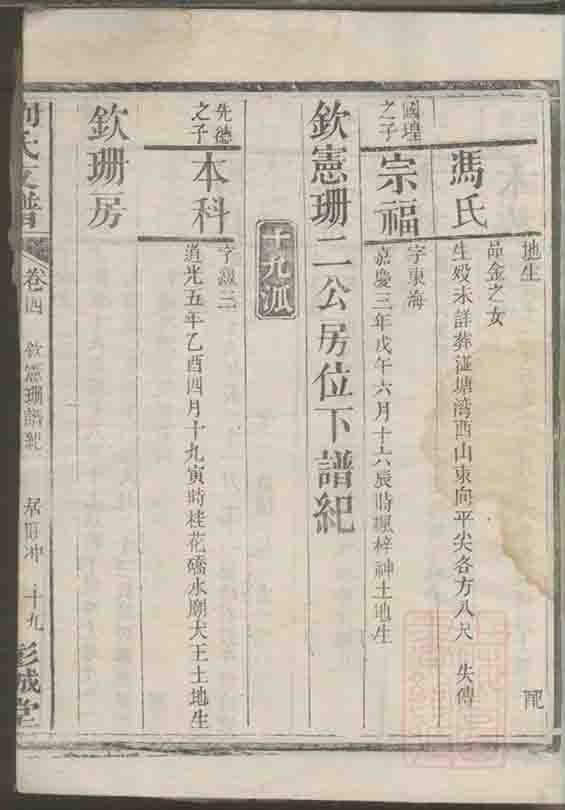 地生
品金之女
配
馮氏
生殁未詳葬 塘湾西山東向平尖各方八尺 失傳
國煌
之子
宗福
字東海
嘉慶三年戊午六月十六辰時楓梓神土地生
欽憲珊二公房位下譜紀
十九派
先德
之子
本科
字 三
道光五年乙酉四月十九寅時桂花礄水廟大王土地生
欽珊房
劉氏支譜
卷四
欽憲珊譜紀
十九
彭城堂